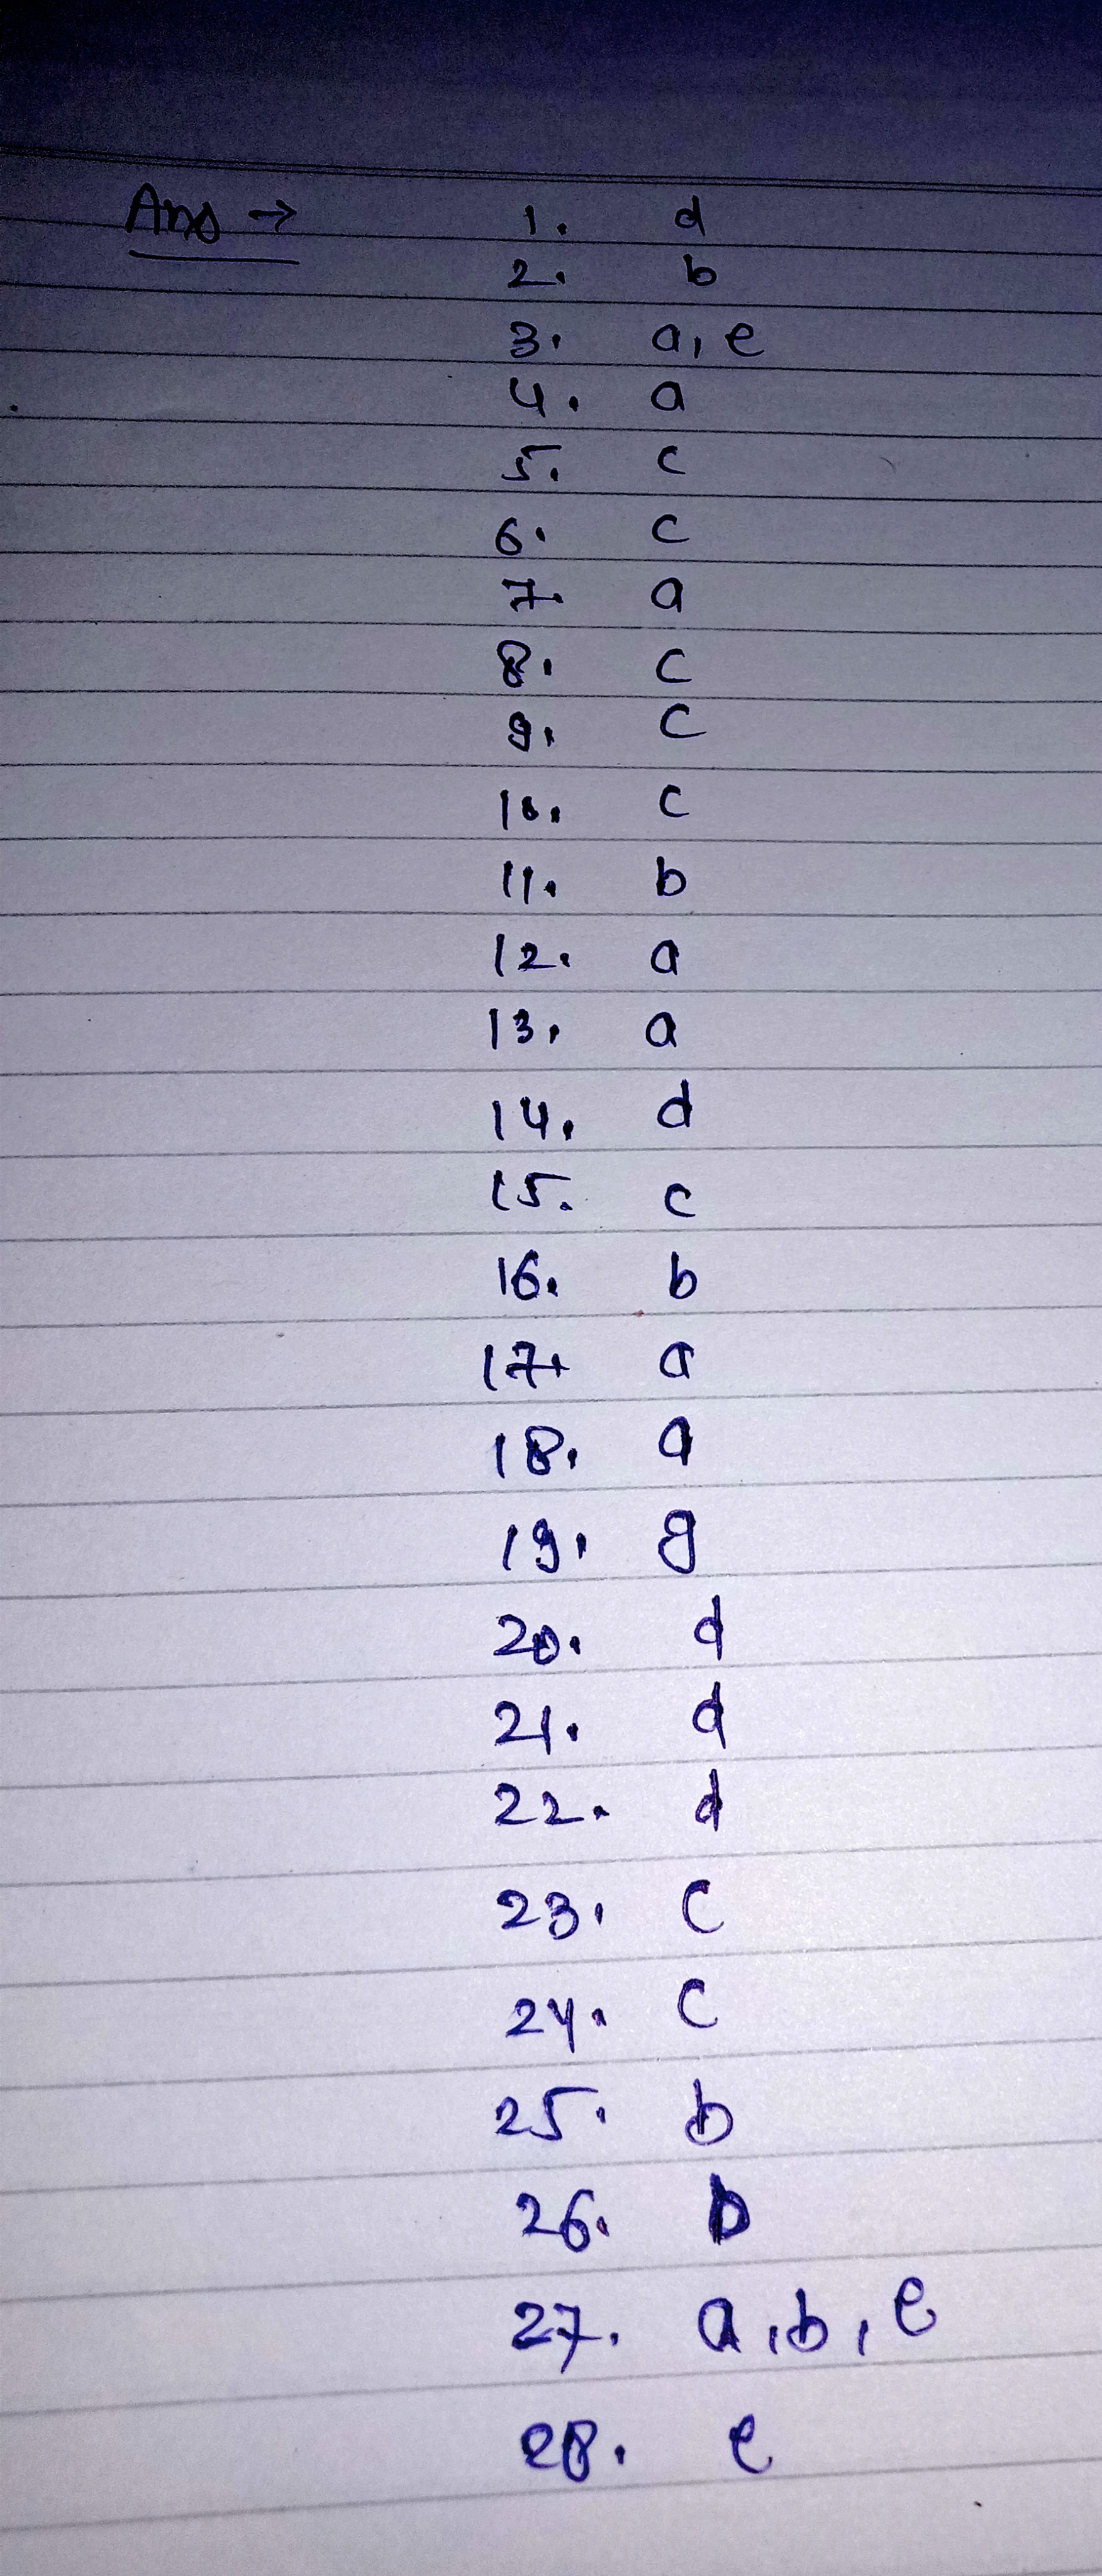 Ans → 1. d
2. b
3. a, e
4. a
5. c
6. c
7. a
8. c
9. c
10. c
11. b
12. a
13. a
14. d
15. c
16. b
17. a
18. a
19. g
20. d
21. d
22. d
23. c
24. c
25. b
26. b
27. a, b, e
28. e